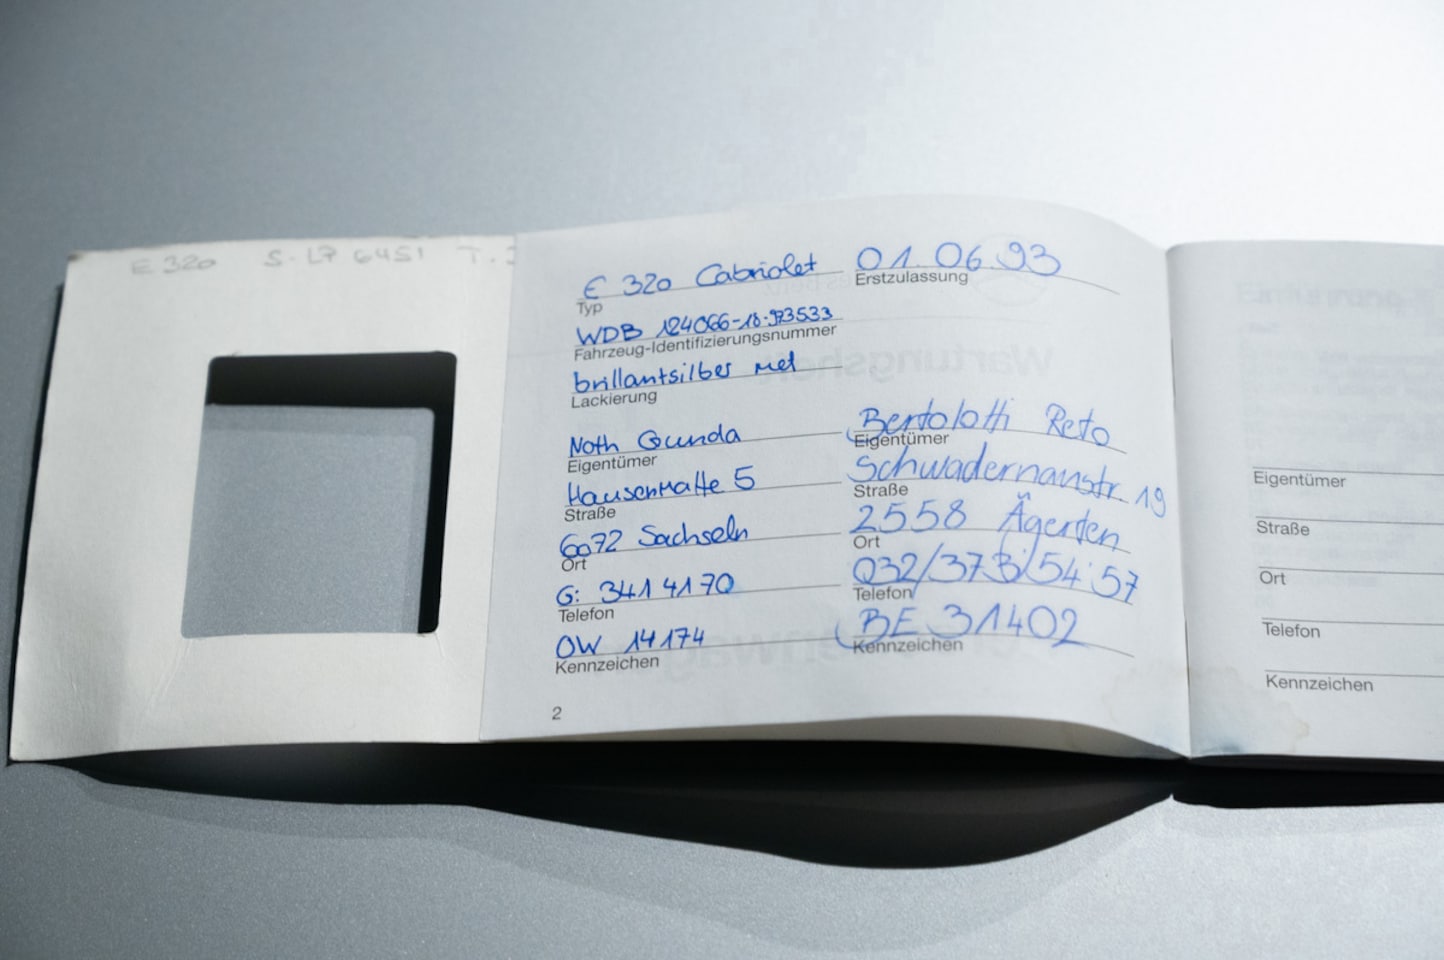 E 320 S-LP 6451 T.
E 320 Cabriolet 01.06.93
Typ Erstzulassung
WDB 124066-18.973533
Fahrzeug-Identifizierungsnummer
brillantsilber met
Lackierung
Noth Gunda Bertolotti Reto
Eigentümer Eigentümer
Hausermatte 5 Schwadernaustr. 19
Straße Straße
6072 Sachseln 2558 Ägerten
Ort Ort
G: 341 41 70 032/373 54 57
Telefon Telefon
OW 14174 BE 31402
Kennzeichen Kennzeichen
2
Eigentümer
Straße
Ort
Telefon
Kennzeichen